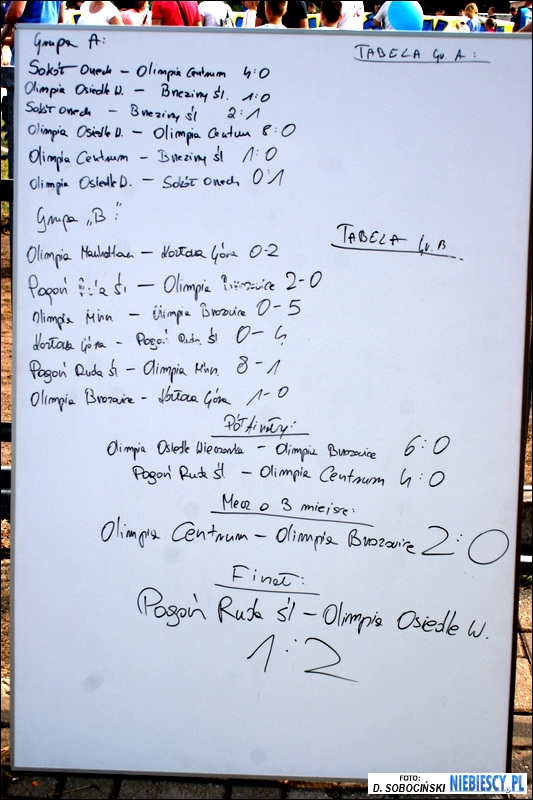 Grupa A:
TABELA Gr. A:
Sokół Orzech – Olimpia Centrum 4:0
Olimpia Osiedle W. – Brzeziny Śl. 1:0
Sokół Orzech – Brzeziny Śl 2:1
Olimpia Osiedle W. – Olimpia Centrum 8:0
Olimpia Centrum – Brzeziny Śl 1:0
Olimpia Osiedle W. – Sokół Orzech 0:1
Grupa „B":
TABELA Gr. B
Olimpia Manhattan – Kozłowa Góra 0-2
Pogoń Ruda Śl – Olimpia Brzozowice 2-0
Olimpia Mhn – Olimpia Brzozowice 0-5
Kozłowa Góra – Pogoń Ruda Śl 0-4
Pogoń Ruda Śl – Olimpia Mhn. 8-1
Olimpia Brzozowice – Kozłowa Góra 1-0
Półfinały:
Olimpia Osiedle Wieczorka – Olimpia Brzozowice 6:0
Pogoń Ruda Śl – Olimpia Centrum 4:0
Mecz o 3 miejsce:
Olimpia Centrum – Olimpia Brzozowice 2:0
Finał:
Pogoń Ruda Śl – Olimpia Osiedle W.
1:2
FOTO:
D. SOBOCIŃSKI NIEBIESCY.PL